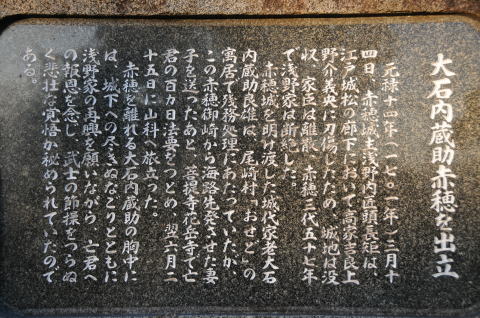 大石内蔵助赤穂を出立
元禄十四年(一七〇一年)三月十
四日、赤穂城主浅野内匠頭長矩は、
江戸城松の廊下において高家吉良上
野介義央に刃傷したため、城地は没
収、家臣は離散、赤穂三代五十七年
で浅野家は断絶した。
赤穂城を明け渡した城代家老大石
内蔵助良雄は、尾崎村「おせど」の
寓居で残務処理にあたっていたが、
この赤穂御崎から海路先発させた妻
子を送ったあと、菩提寺花岳寺で亡
君の百カ日法要をつとめ、翌六月二
十五日に山科へ旅立った。
赤穂を離れる大石内蔵助の胸中に
は、城下への尽きぬなごりとともに
浅野家の再興を願いながら、亡君へ
の報恩を念じ、武士の節操をつらぬ
く悲壮な覚悟が秘められていたので
ある。